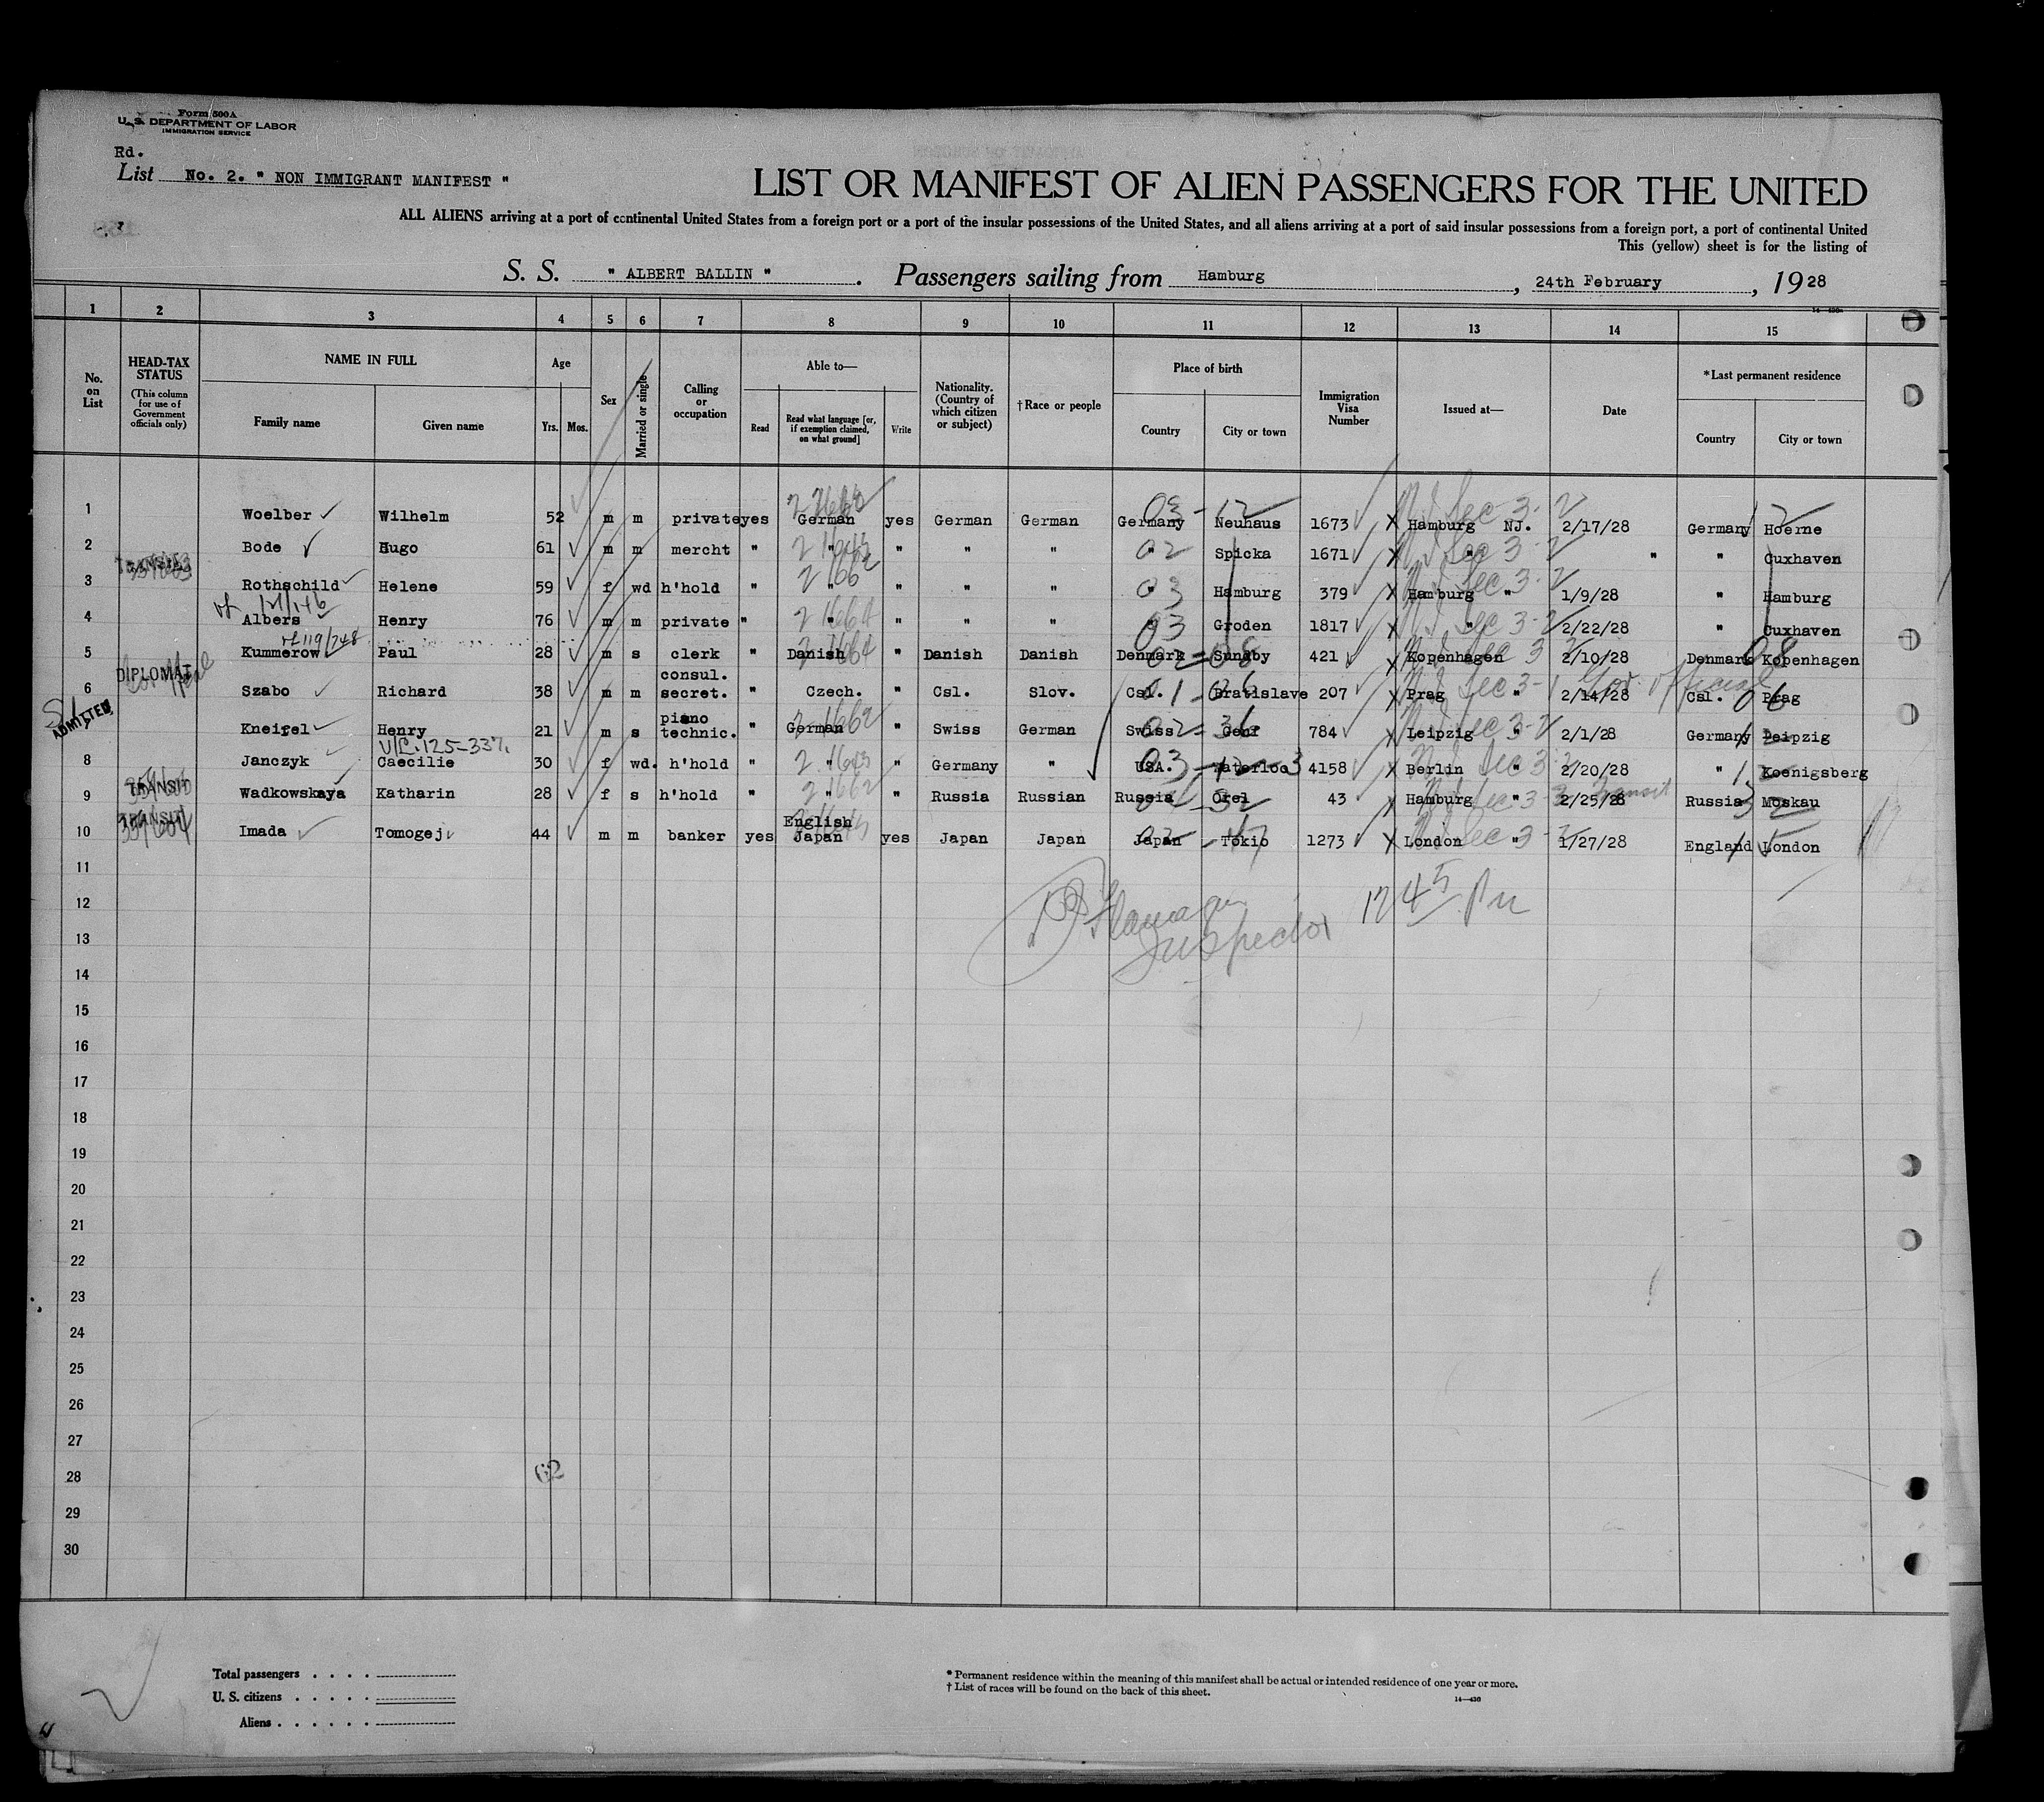 Form 500A
U. S. DEPARTMENT OF LABOR
IMMIGRATION SERVICE
Rd.
List No. 2. " NON IMMIGRANT MANIFEST "
LIST OR MANIFEST OF ALIEN PASSENGERS FOR THE UNITED
ALL ALIENS arriving at a port of continental United States from a foreign port or a port of the insular possessions of the United States, and all aliens arriving at a port of said insular possessions from a foreign port, a port of continental United
This (yellow) sheet is for the listing of
S. S. " ALBERT BALLIN ". Passengers sailing from Hamburg, 24th February, 1928
1 2 3 4 5 6 7 8 9 10 11 12 13 14 15
No. on List
HEAD-TAX STATUS
(This column for use of Government officials only)
NAME IN FULL
Family name
Given name
Age
Yrs.
Mos.
Sex
Married or single
Calling or occupation
Able to—
Read
Read what language [or, if exemption claimed, on what ground]
Write
Nationality. (Country of which citizen or subject)
†Race or people
Place of birth
Country
City or town
Immigration Visa Number
Issued at—
Date
*Last permanent residence
Country
City or town
1 Woelber Wilhelm 52 m m private yes German yes German German Germany Neuhaus 1673 Hamburg NJ. 2/17/28 Germany Hoerne
2 Bode Hugo 61 m m mercht " " " " " " Spicka 1671 " " " Cuxhaven
TRANSIT
3 Rothschild Helene 59 f wd h'hold " " " " " " Hamburg 379 Hamburg " 1/9/28 " Hamburg
4 Albers Henry 76 m m private " " " " " " Groden 1817 " 2/22/28 " Cuxhaven
5 Kummerow Paul 28 m s clerk " Danish " Danish Danish Denmark Sundby 421 Kopenhagen 2/10/28 Denmark Kopenhagen
DIPLOMAT
6 Szabo Richard 38 m m consul. secret. " Czech. " Csl. Slov. Csl. Bratislave 207 Prag " 2/14/28 Gov. official Csl. Prag
ADMITTED
Kneifel Henry 21 m s piano technic. " German " Swiss German Swiss Genf 784 Leipzig " 2/1/28 Germany Leipzig
V/L. 125-337.
8 Janczyk Caecilie 30 f wd. h'hold " " " Germany " USA. Waterloo 4158 Berlin " 2/20/28 " Koenigsberg
TRANSIT
9 Wadkowskaya Katharin 28 f s h'hold " " " Russia Russian Russia Orel 43 Hamburg " 2/25/28 Transit Russia Moskau
TRANSIT
10 Imada Tomogej 44 m m banker yes English Japan yes Japan Japan Japan Tokio 1273 London " 1/27/28 England London
11
12
Inspector 1245 Pm
13
14
15
16
17
18
19
20
21
22
23
24
25
26
27
28 62
29
30
Total passengers . . . .
U. S. citizens . . . . .
Aliens . . . . . .
* Permanent residence within the meaning of this manifest shall be actual or intended residence of one year or more.
† List of races will be found on the back of this sheet.
14—430